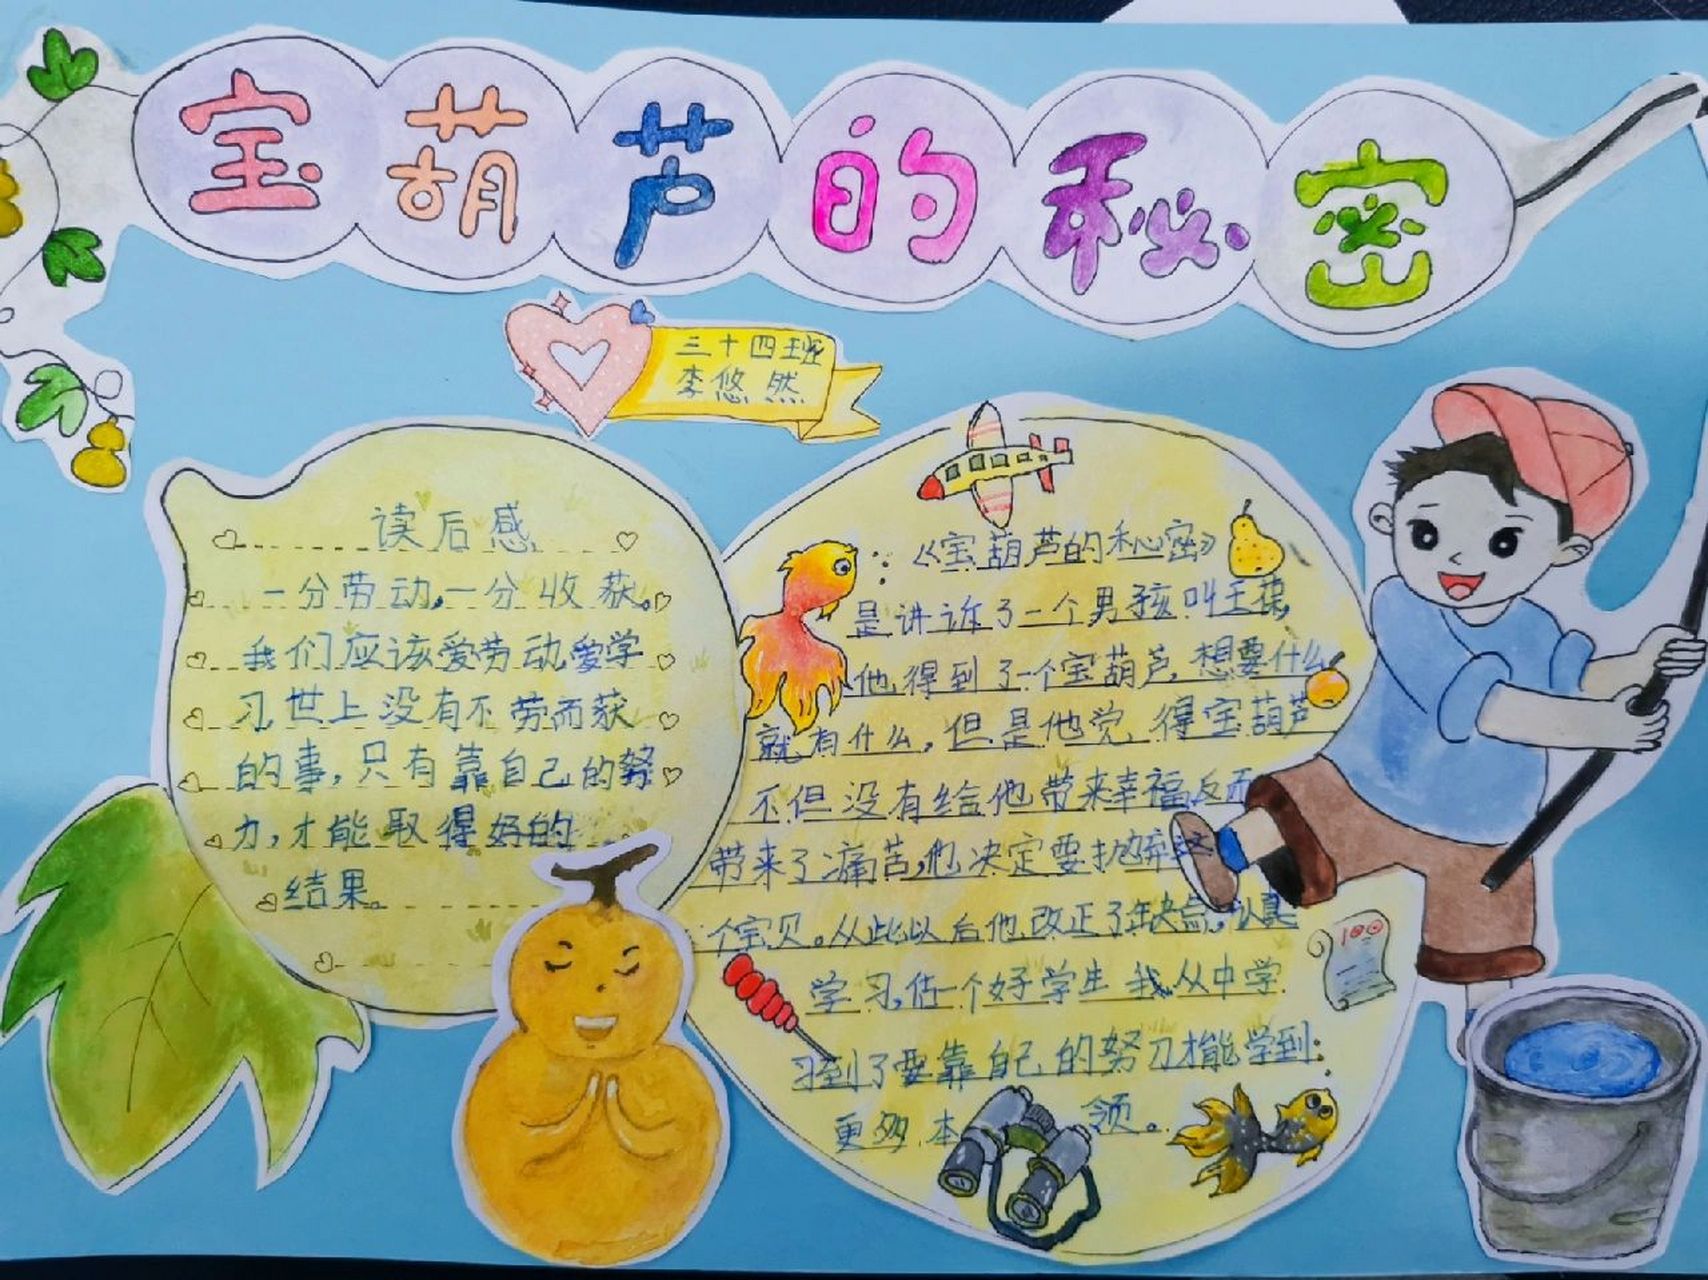 宝葫芦的秘密
三十四班
李悠然
读后感
一分劳动,一分收获。
我们应该爱劳动爱学
习,世上没有不劳而获
的事,只有靠自己的努
力,才能取得好的
结果。
《宝葫芦的秘密》
是讲诉了一个男孩叫王葆,
他得到了一个宝葫芦,想要什么
就有什么,但是他觉得宝葫芦
不但没有给他带来幸福反而
带来了痛苦,他决定要抛弃这
个宝贝。从此以后他改正了缺点,认真
学习,估一个好学生我从中学
习到了要靠自己的努刀才能学到:
更多本领。
100